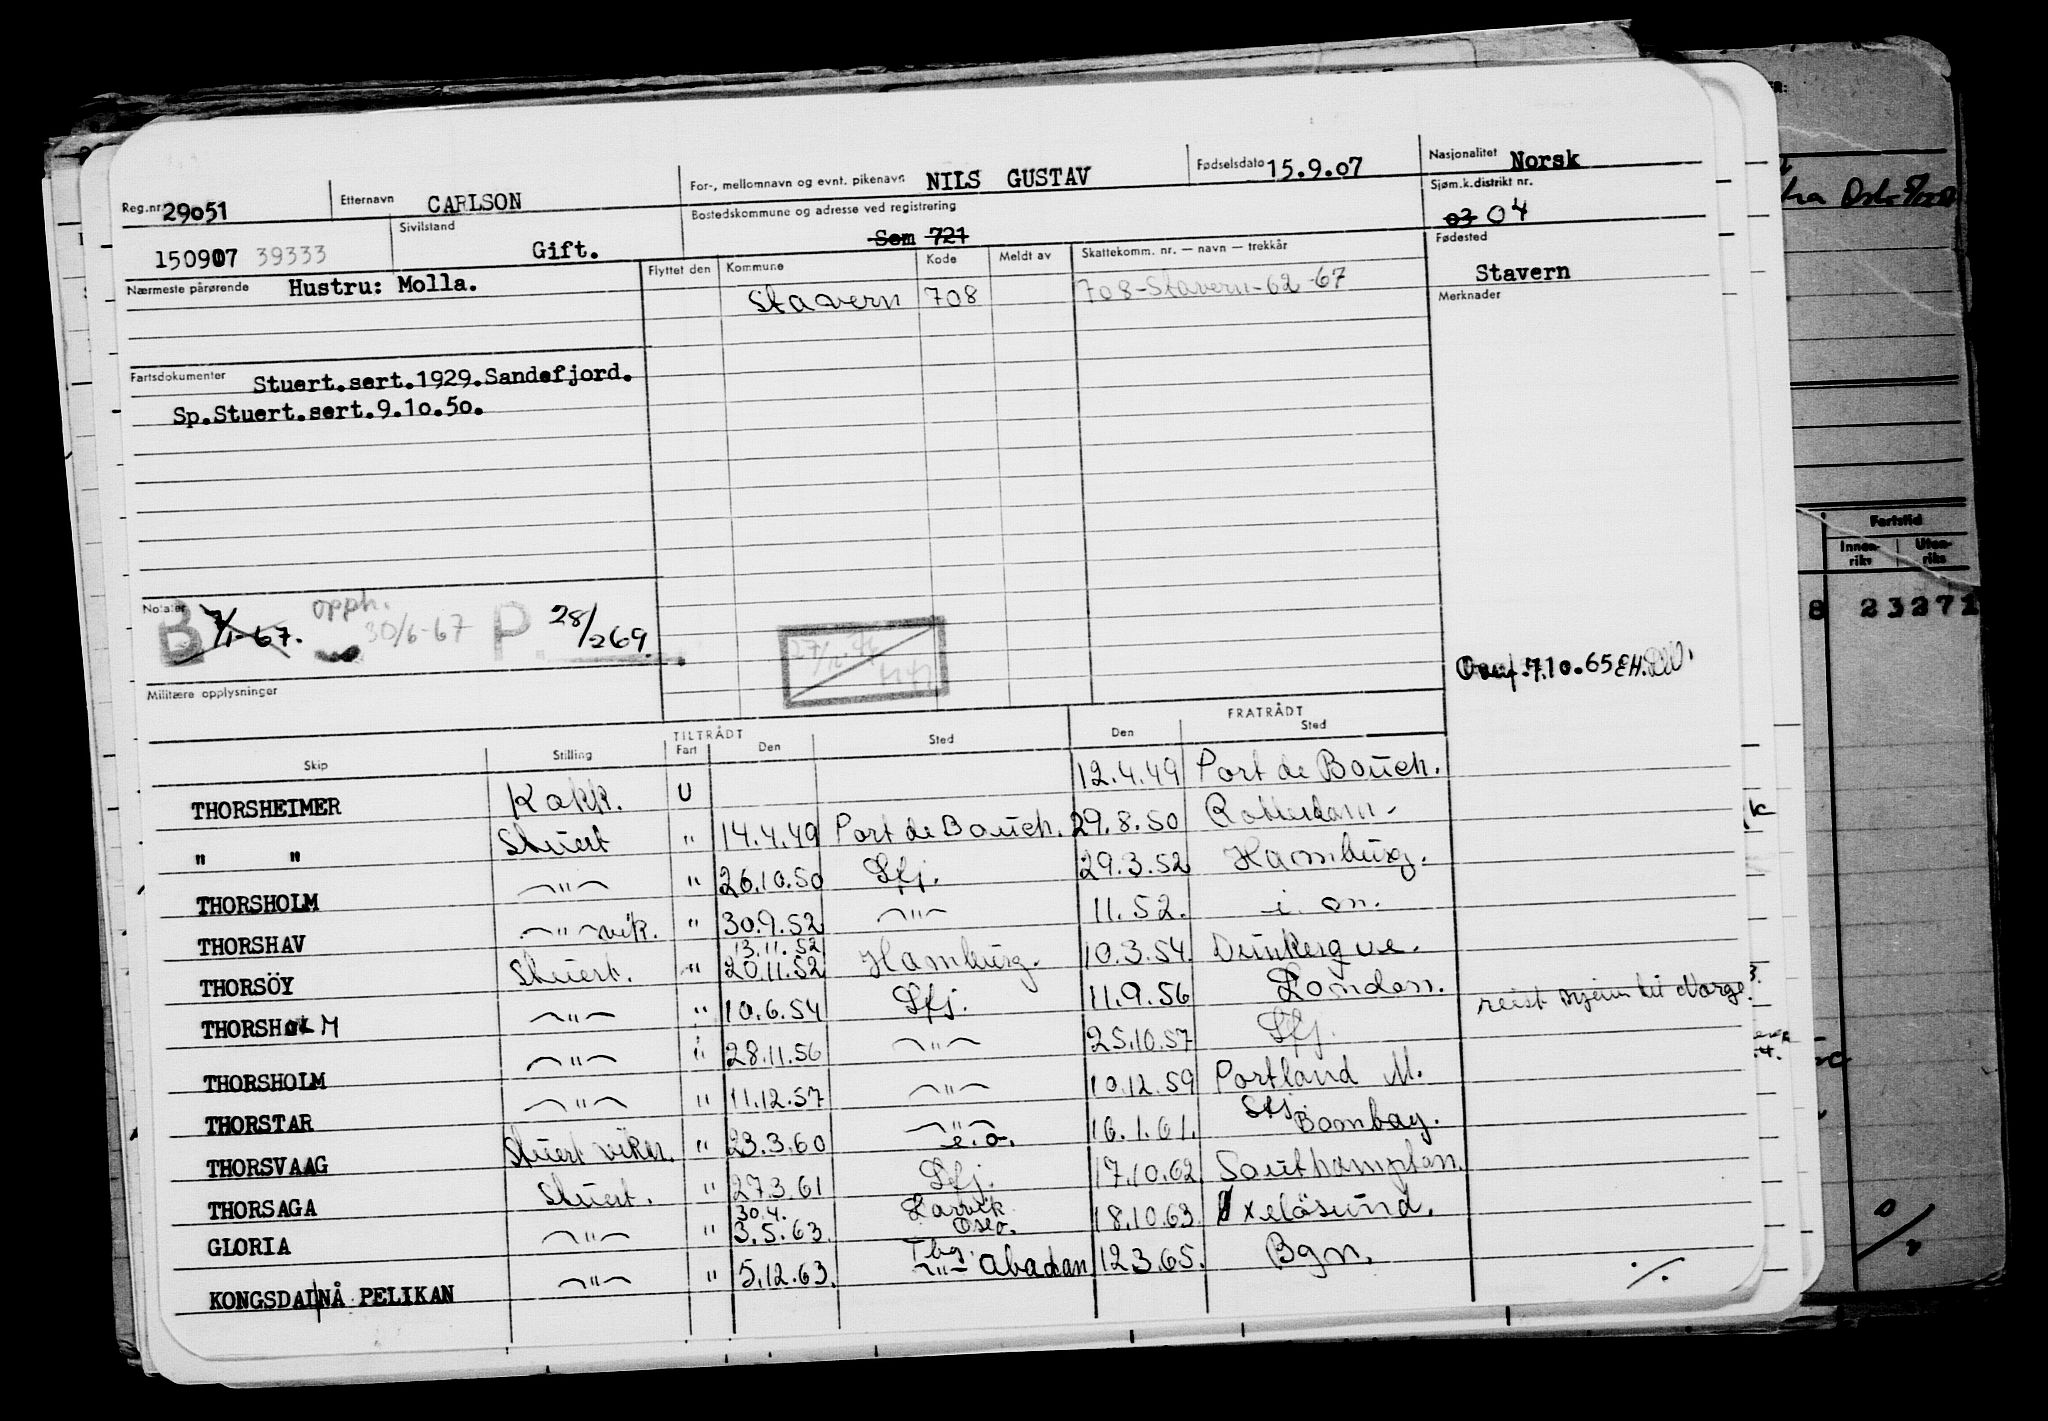 Reg.nr. 29051 Etternavn CARLSON For-, mellomnavn og evnt. pikenavn NILS GUSTAV Fødselsdato 15.9.07 Nasjonalitet Norsk
150907 39333 Sivilstand Gift. Bostedskommune og adresse ved registrering Sem 721 Sjøm.k.distrikt nr. 03 04
Nærmeste pårørende Hustru: Molla. Flyttet den Kommune Kode Meldt av Skattekomm. nr. — navn — trekkår Fødested Stavern
Stavern 708 708-Stavern-62-67 Merknader
Fartsdokumenter Stuert.sert.1929.Sandefjord.
Sp.Stuert.sert.9.10.50.
Notater B 7/1-67. opph. 30/6-67 P. 28/269.
Overf. 7.10.65 E.H.
Militære opplysninger
TILTRÅDT FRATRÅDT
Skip Stilling Fart Den Sted Den Sted
THORSHEIMER Kokk. U 12.4.49 Port de Bouch.
" " Stuert " 14.4.49 Port de Bouch. 29.8.50 Rotterdam.
THORSHOLM —"— " 26.10.50 Sfj. 29.3.52 Hamburg.
THORSHAV —"— vik. " 30.9.52 —"— 11.52. i. on.
THORSÖY Stuert. " 13.11.52 20.11.52 Hamburg. 10.3.54. Dunkerque.
THORSHOLM —"— " 10.6.54 Sfj. 11.9.56 London. reist hjem til Norge.
THORSHOLM —"— " 28.11.56 —"— 25.10.57 Sfj.
THORSTAR —"— " 11.12.57 —"— 10.12.59 Portland M.
THORSVAAG Stuert vikar. " 23.3.60 —"— e.o. 16.1.61. Sfj. Bombay.
THORSAGA Stuert. " 27.3.61 Sfj. 17.10.62 Southampton.
GLORIA —"— " 30.4. 3.5.63. Larvik Oslo. 18.10.63. Oxelösund.
KONGSDAL NÅ PELIKAN —"— " 5.12.63. Tbg. —"— Abadan 12.3.65. Bgn.
./.
Fartstid
Innen-riks Uten-riks
8 23271